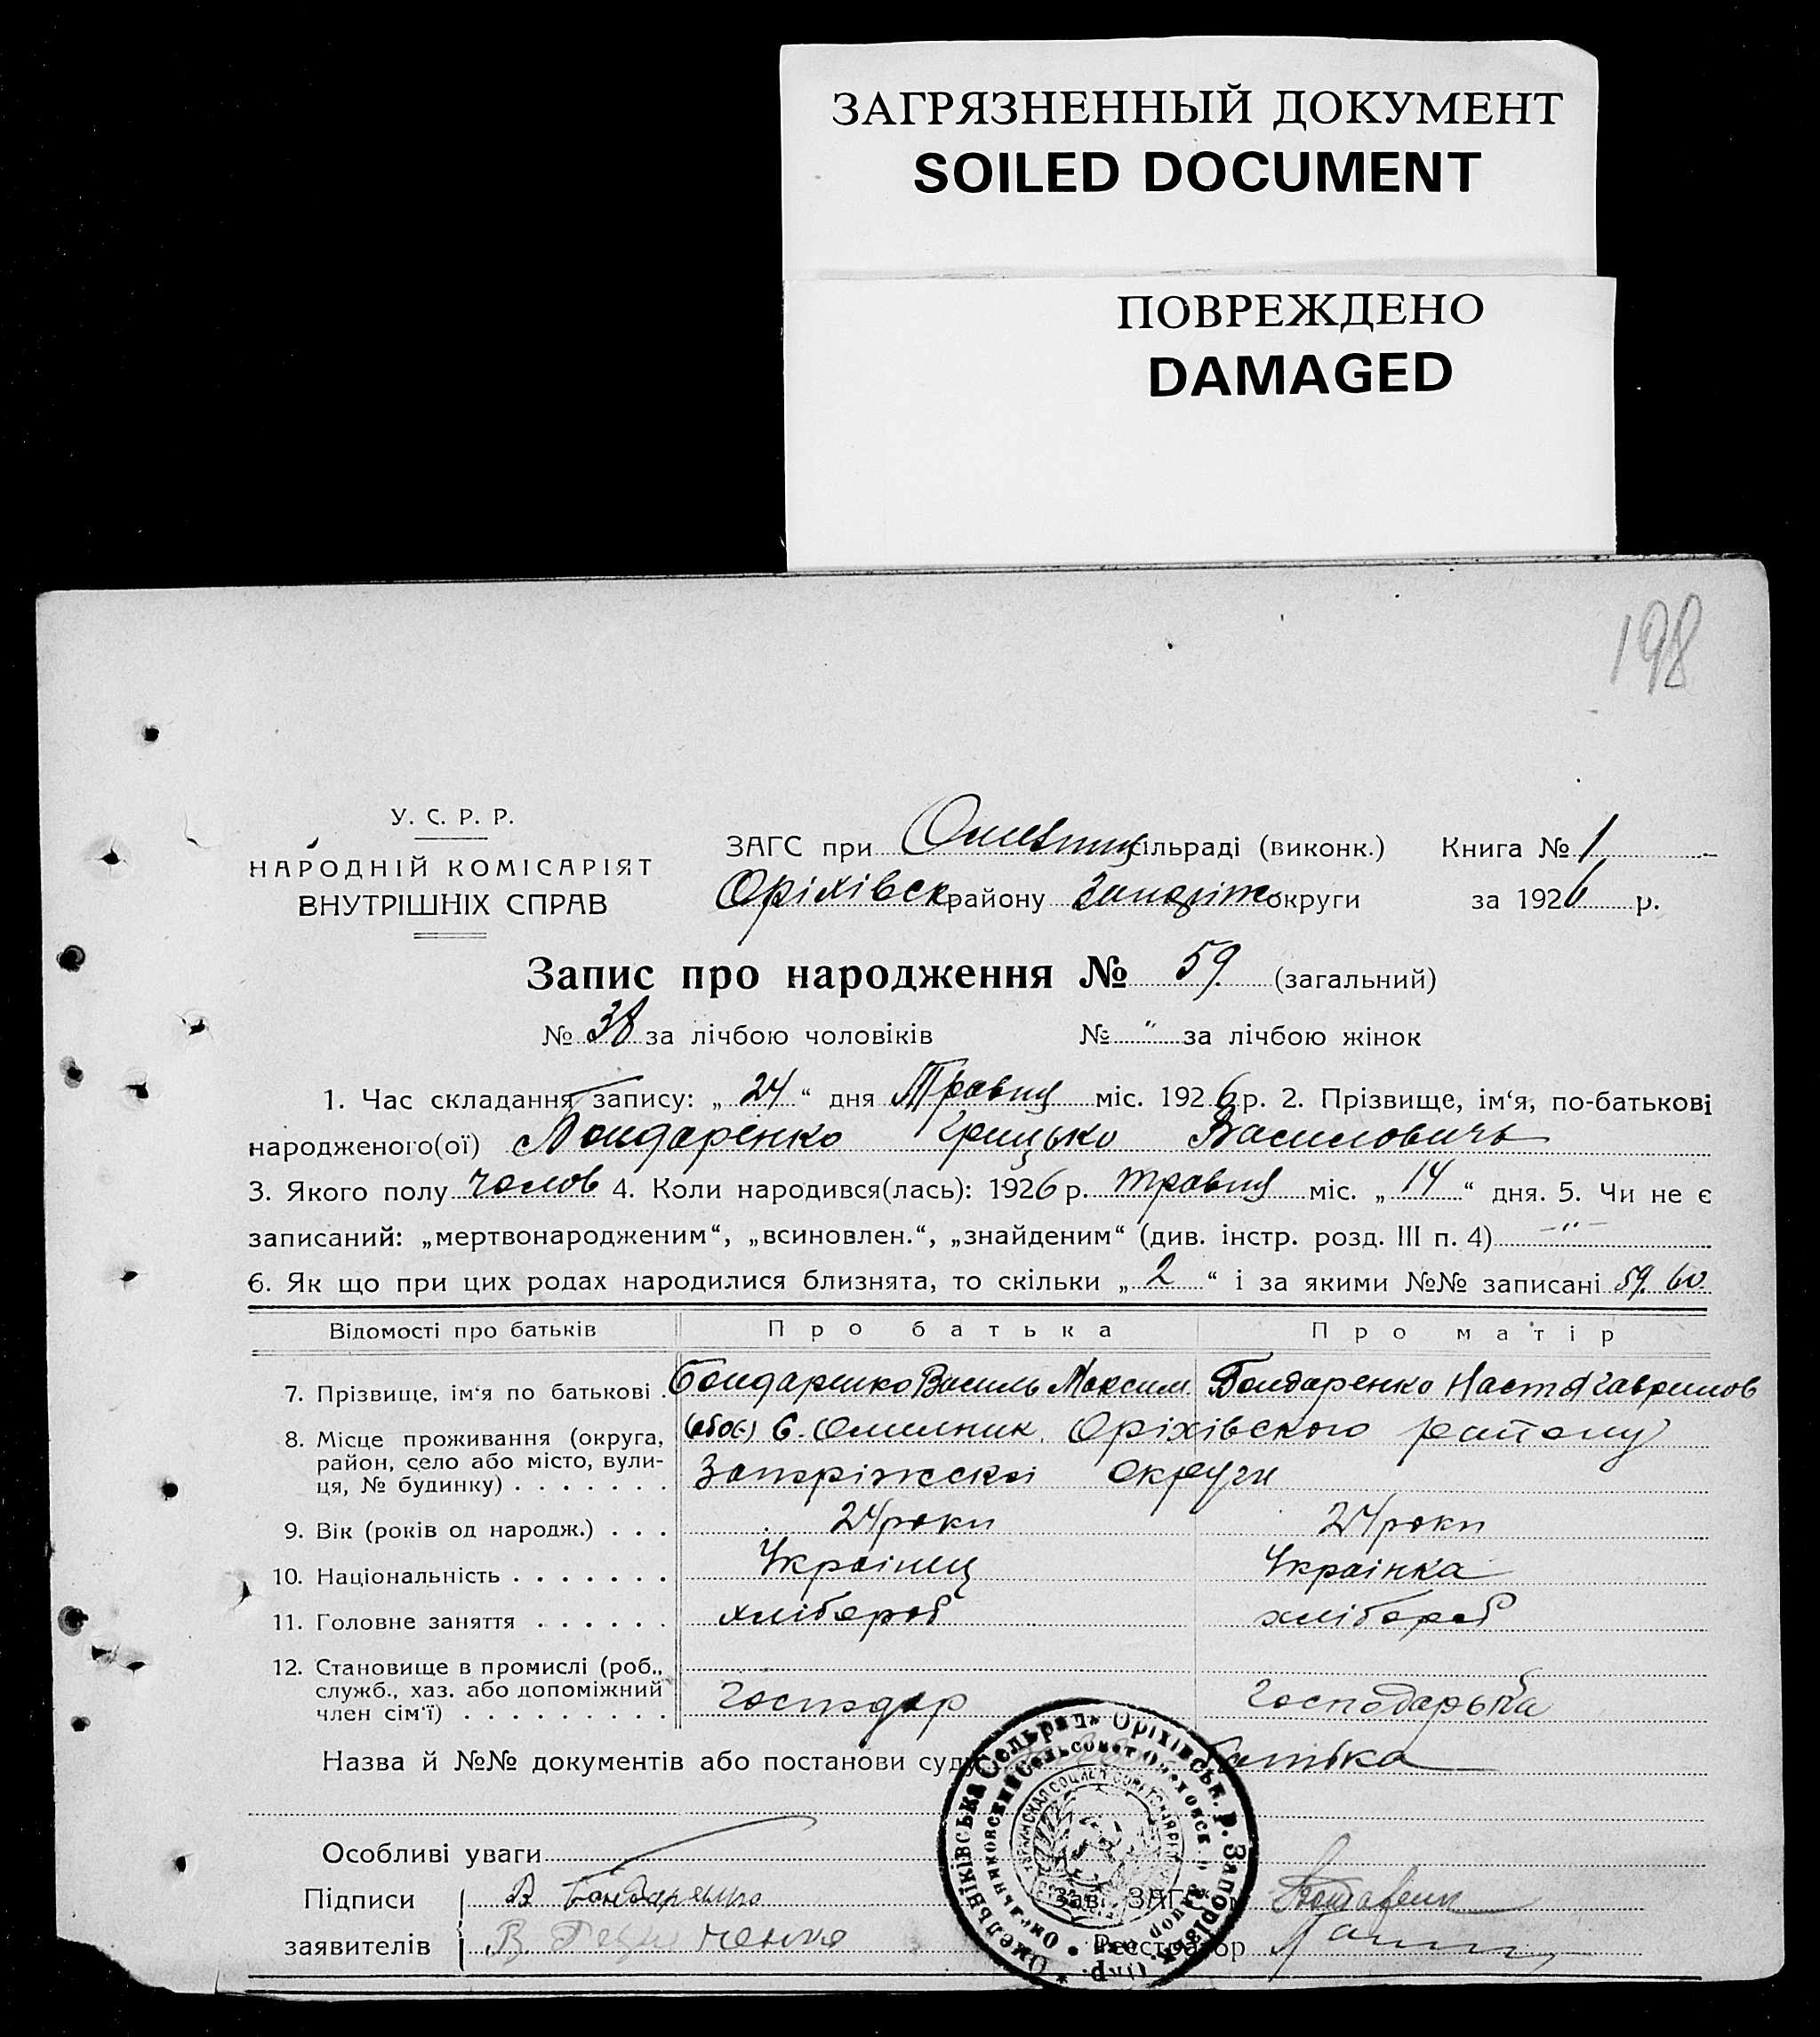 ЗАГРЯЗНЕННЫЙ ДОКУМЕНТ
SOILED DOCUMENT
ПОВРЕЖДЕНО
DAMAGED
198
У. С. Р. Р.
НАРОДНІЙ КОМІСАРІЯТ
ВНУТРІШНІХ СПРАВ
ЗАГС при сільраді (виконк.) Книга № 1
Оріхівск району Запоріж округи за 1926 р.
Запис про народження № 59. (загальний)
№ 38 за лічбою чоловіків № " за лічбою жінок
1. Час складання запису: „ 24 “ дня Травня міс. 1926 р. 2. Прізвище, ім‘я, по-батькові
народженого(ої) Бондаренко Грицько Василовичь
3. Якого полу чолов 4. Коли народився(лась): 1926 р. травня міс. „ 14 “ дня. 5. Чи не є
записаний: „мертвонародженим“, „всиновлен.“, „знайденим“ (див. інстр. розд. III п. 4) — " —
6. Як що при цих родах народилися близнята, то скільки „ 2 “ і за якими №№ записані 59. 60
Відомості про батьків Про батька Про матір
7. Прізвище, ім‘я по батькові . Бондаренко Василь Максим Бондаренко Настя Гаврилов
8. Місце проживання (округа, район, село або місто, вулиця, № будинку) . . . . . . . с. Омелник Оріхівского району
Запоріжскої округи
9. Вік (років од народж.) . . . 24 роки 24 роки
10. Національність . . . . . . . Українец Українка
11. Головне заняття . . . . . . хлібороб хлібороб
12. Становище в промислі (роб., служб., хаз. або допоміжний член сім‘ї) . . . . . . . . . Господар Господарька
Назва й №№ документів або постанови суду батька
Особливі уваги
Підписи В Бондаренко Зав. ЗАГС‘у
заявителів В. Реєстратор
Омельниківська Сельрада Оріхівськ. Р. Запорізьк. Окр.